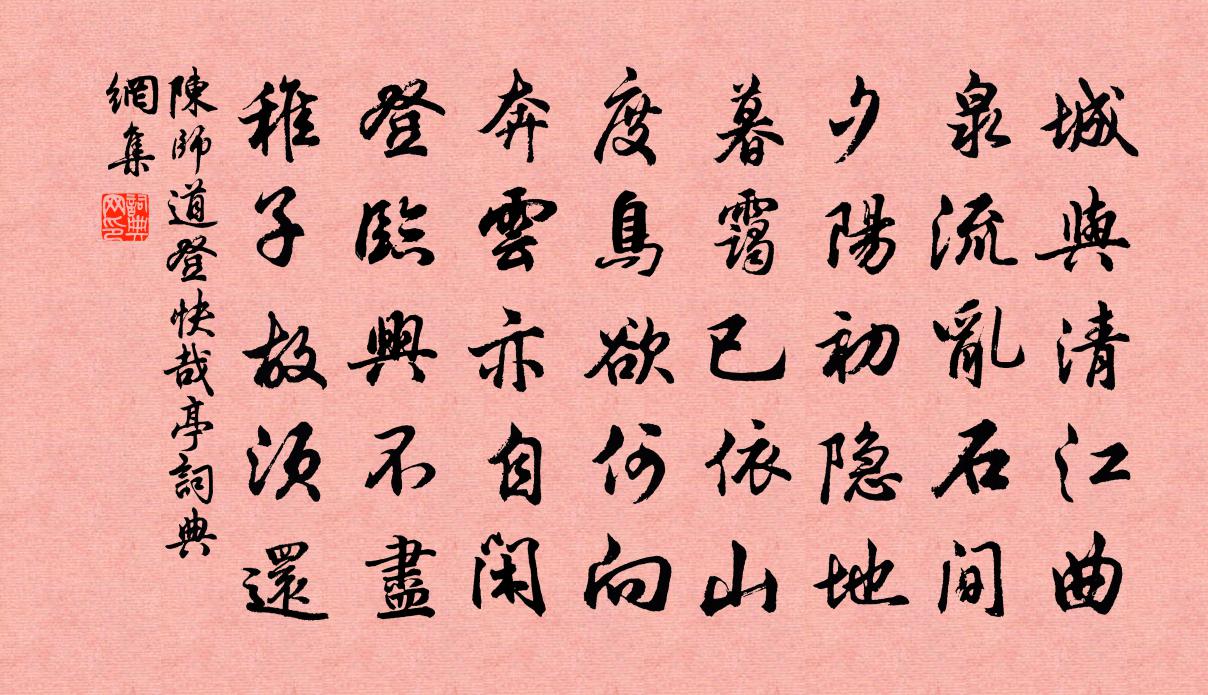 城與清江曲
泉流亂石間
夕陽初隐地
暮靄已依山
度鳥欲何向
奔雲亦自閑
登臨興不盡
稚子故須還
陳師道登快哉亭詞典
網集
詞典网印